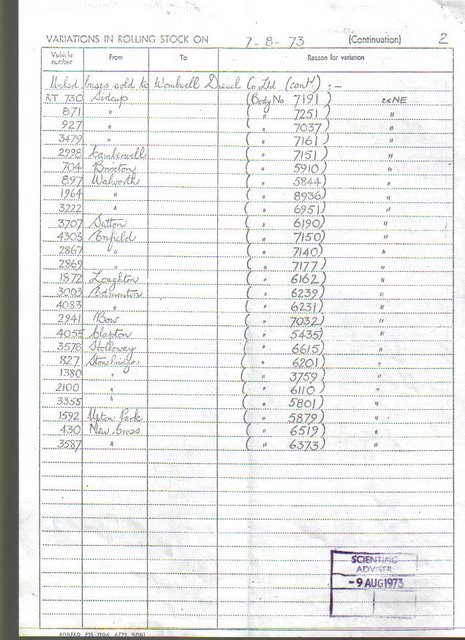 VARIATIONS IN ROLLING STOCK ON 7-8-73 (Continuation) 2
Vehicle number From To Reason for variation
Unlsd buses sold to Wombwell Diesel Co Ltd (contd) :-
RT 730 Sidcup (Body No 7191) exNE
871 " ( " 7251) "
927 " ( " 7037) "
3479 " ( " 7161) "
2998 Camberwell ( " 7151) "
704 Brixton ( " 5910) "
897 Walworth ( " 5844) "
1964 " ( " 8936) "
3222 " ( " 6951) "
3707 Sutton ( " 6190) "
4303 Enfield ( " 7150) "
2867 " ( " 7140) "
2869 " ( " 7177) "
1872 Loughton ( " 6162) "
3003 Edmonton ( " 6239) "
4083 " ( " 6231) "
2941 Bow ( " 7032) "
4055 Clapton ( " 5435) "
3578 Holloway ( " 6615) "
827 Stonebridge ( " 6201) "
1380 " ( " 3759) "
2100 " ( " 6110) "
3355 " ( " 5801) "
1592 Upton Park ( " 5879) "
430 New Cross ( " 6519) "
3587 " ( " 6373) "
SCIENTIFIC
ADVISER
-9 AUG 1973